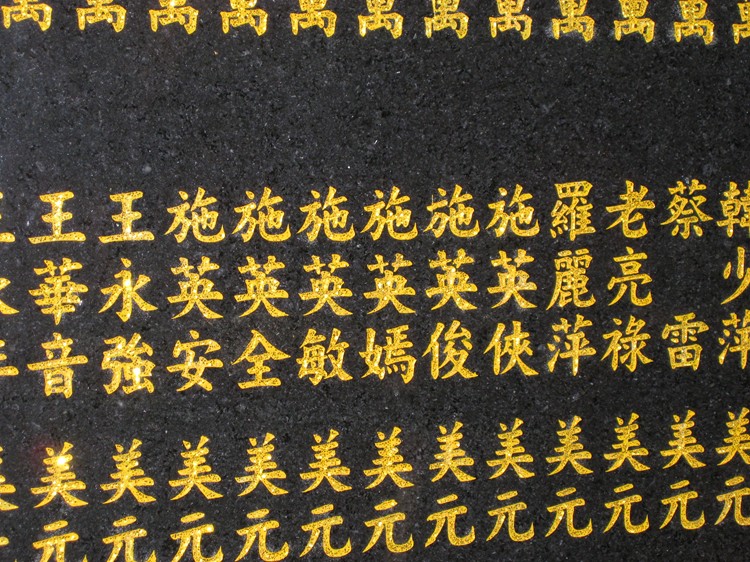 萬 少萍 美元
萬 蔡雷 美元
萬 老亮祿 美元
萬 羅麗萍 美元
萬 施英俠 美元
萬 施英俊 美元
萬 施英嫣 美元
萬 施英敏 美元
萬 施英全 美元
萬 施英安 美元
萬 王永強 美元
萬 王華音 美元